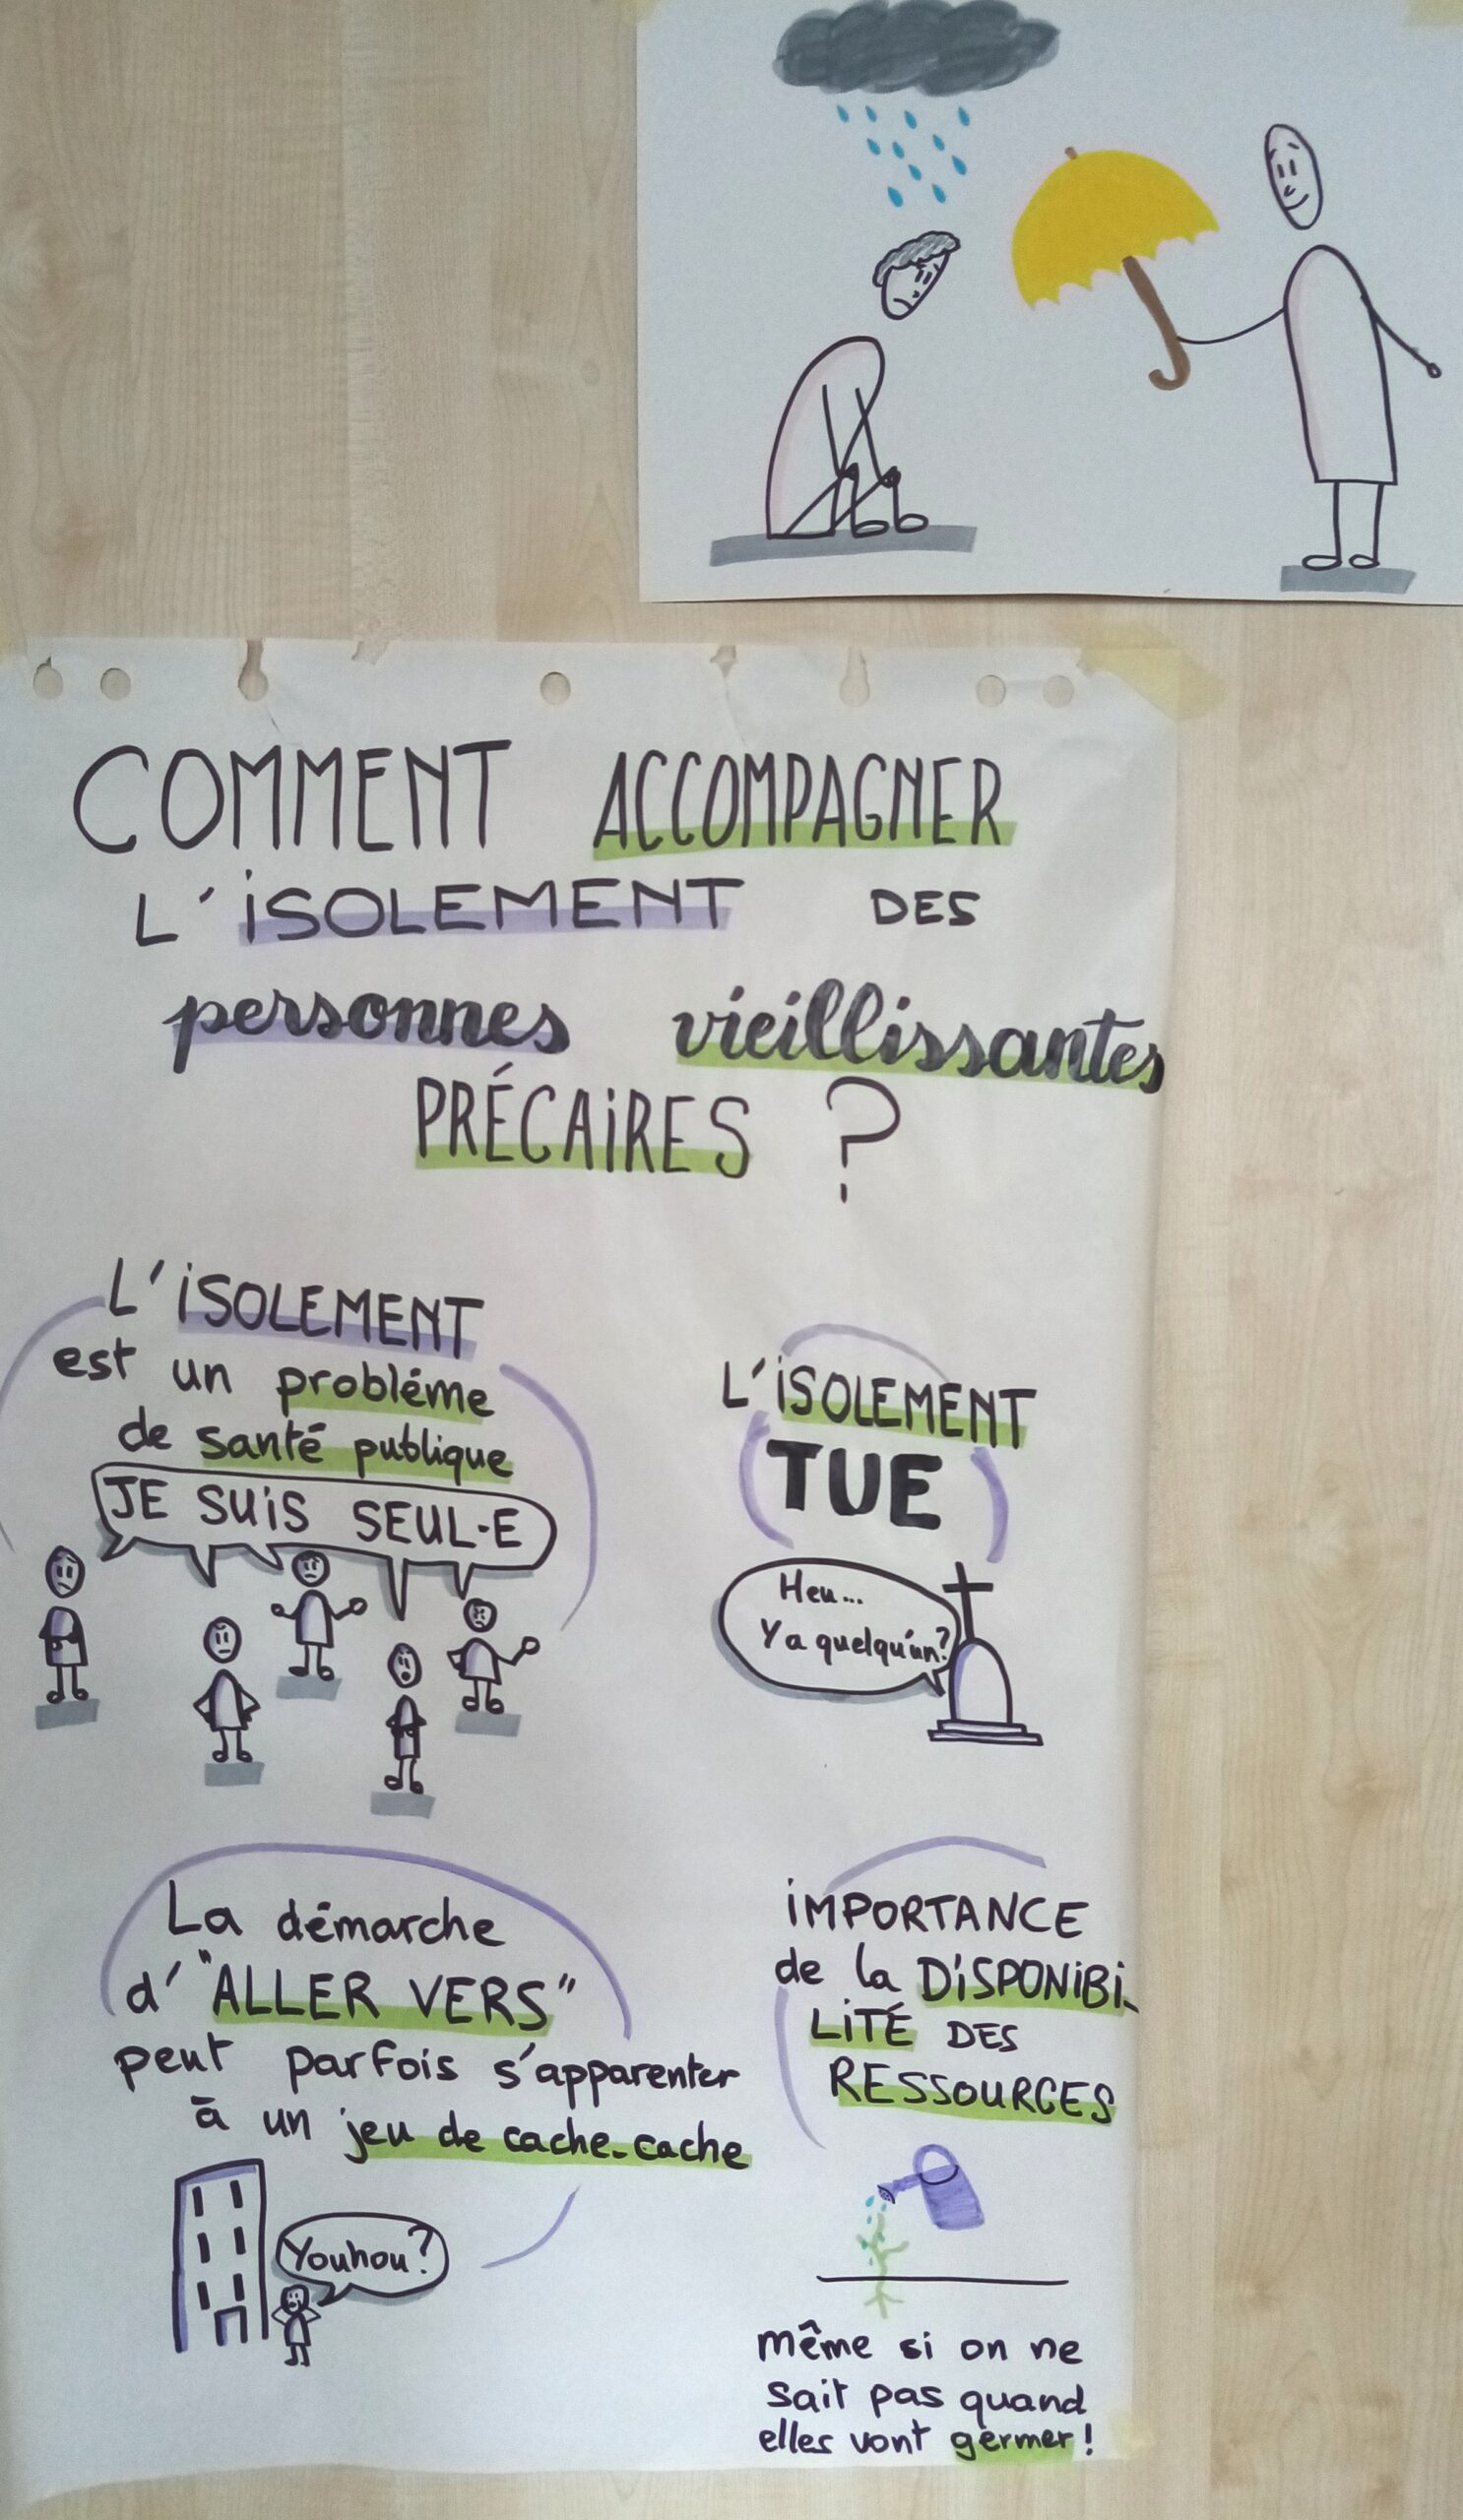 COMMENT ACCOMPAGNER
L'iSOLEMENT DES
personnes vieillissantes
PRÉCAiRES ?
L'iSOLEMENT
est un problème
de santé publique
JE SUiS SEUL·E
L'iSOLEMENT
TUE
Heu...
Y a quelqu'un?
La démarche
d'"ALLER VERS"
peut parfois s'apparenter
à un jeu de cache-cache
Youhou?
iMPORTANCE
de la DiSPONiBi-
LiTÉ DES
RESSOURCES
même si on ne
sait pas quand
elles vont germer!